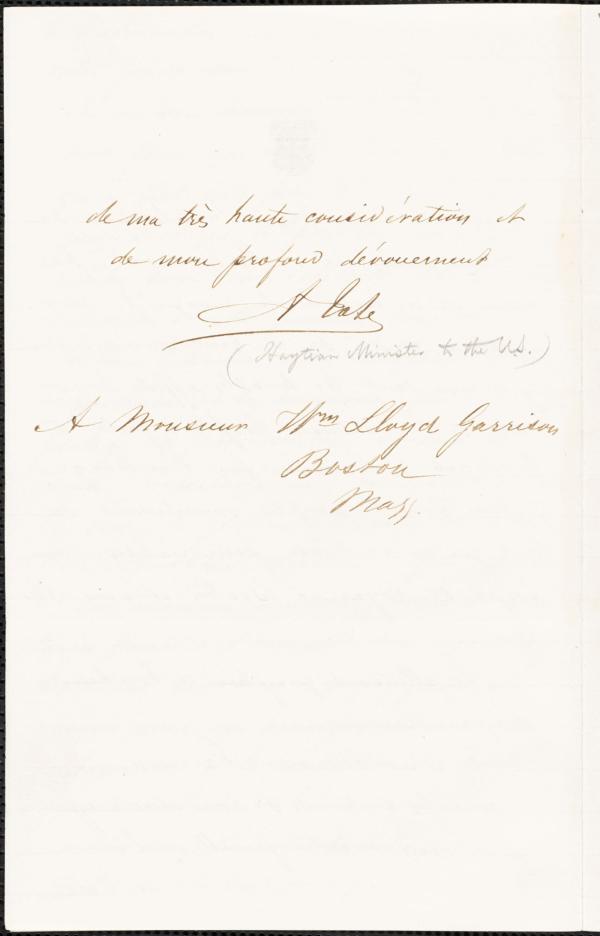 de ma très haute considération et
de mon profond dévouement
A Tate
(Haytian Minister to the U.S.)
A Monsieur Wm Lloyd Garrison
Boston
Mass.